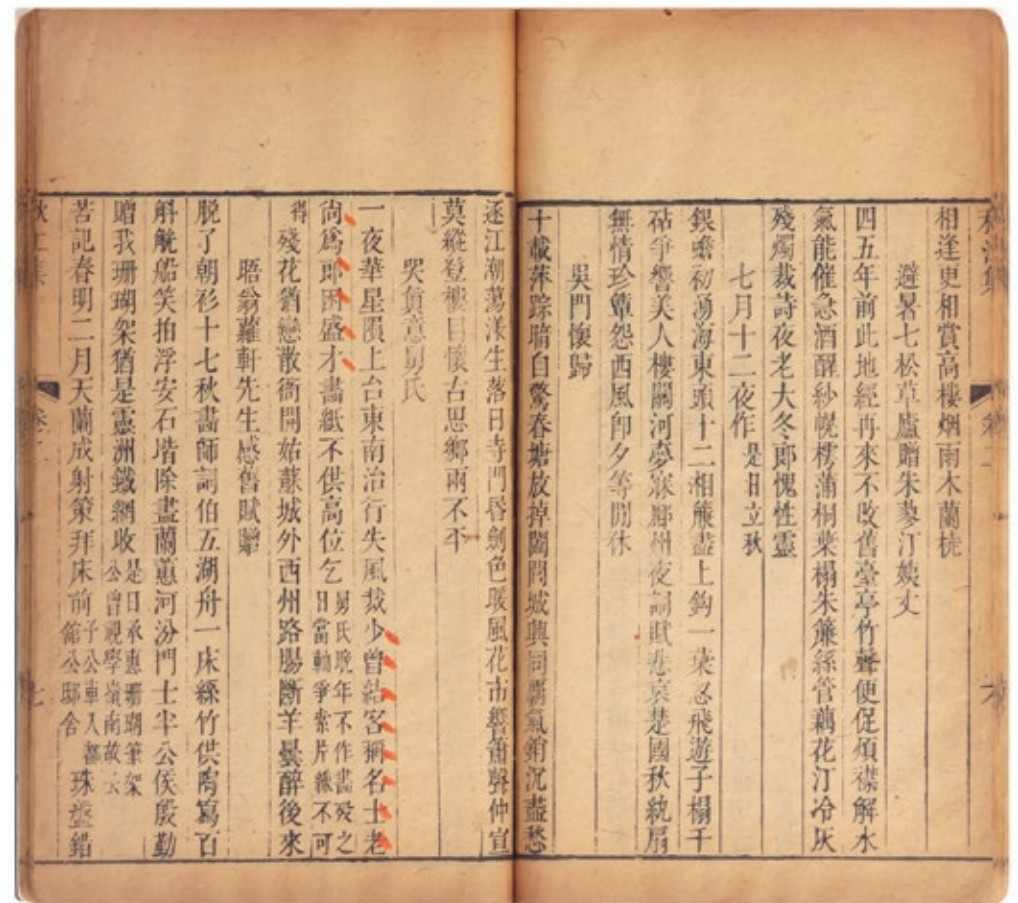 相逢更相賞高樓烟雨木蘭橈
避暑七松草廬贈朱蓼汀姨丈
四五年前此地經再來不改舊臺亭竹聲便促煩襟解水
氣能催急酒醒紗幌樗蒲桐葉榻朱簾絲管藕花汀冷灰
殘燭裁詩夜老大冬郎愧性靈
七月十二夜作 是日立秋
銀蟾初湧海東頭十二湘簾盡上鈎一葉忽飛遊子榻千
砧爭響美人樓關河夢寐鄜州夜詞賦悲哀楚國秋紈扇
無情珍簟怨西風卽夕等閒休
吳門懷歸
十載萍踪暗自驚春塘放掉闔閭城興同霸氣銷沉盡愁
逐江潮蕩漾生落日寺門昏劍色暖風花市響簫聲仲宣
莫縱登樓目懷古思鄉兩不平
哭負意舅氏
一夜華星隕上台東南治行失風裁少曾結客稱名士老
尙爲郎困盛才畵紙不供高位乞 舅氏晩年不作畵歿之
日當軸爭索片縑不可
得 殘花猶戀散衙開姑蘇城外西州路腸斷羊曇醉後來
晤翁蘿軒先生感舊賦贈
脫了朝衫十七秋畵師詞伯五湖舟一床絲竹供陶寫百
斛觥船笑拍浮安石堦除盡蘭蕙河汾門士半公侯殷勤
贈我珊瑚架猶是靈洲鐵網收 是日承惠珊瑚筆架
公曾視學嶺南故云
苦記春明二月天蘭成射策拜床前 子公車入都
館公邸舍 珠盤錯
秋江集
卷二
七